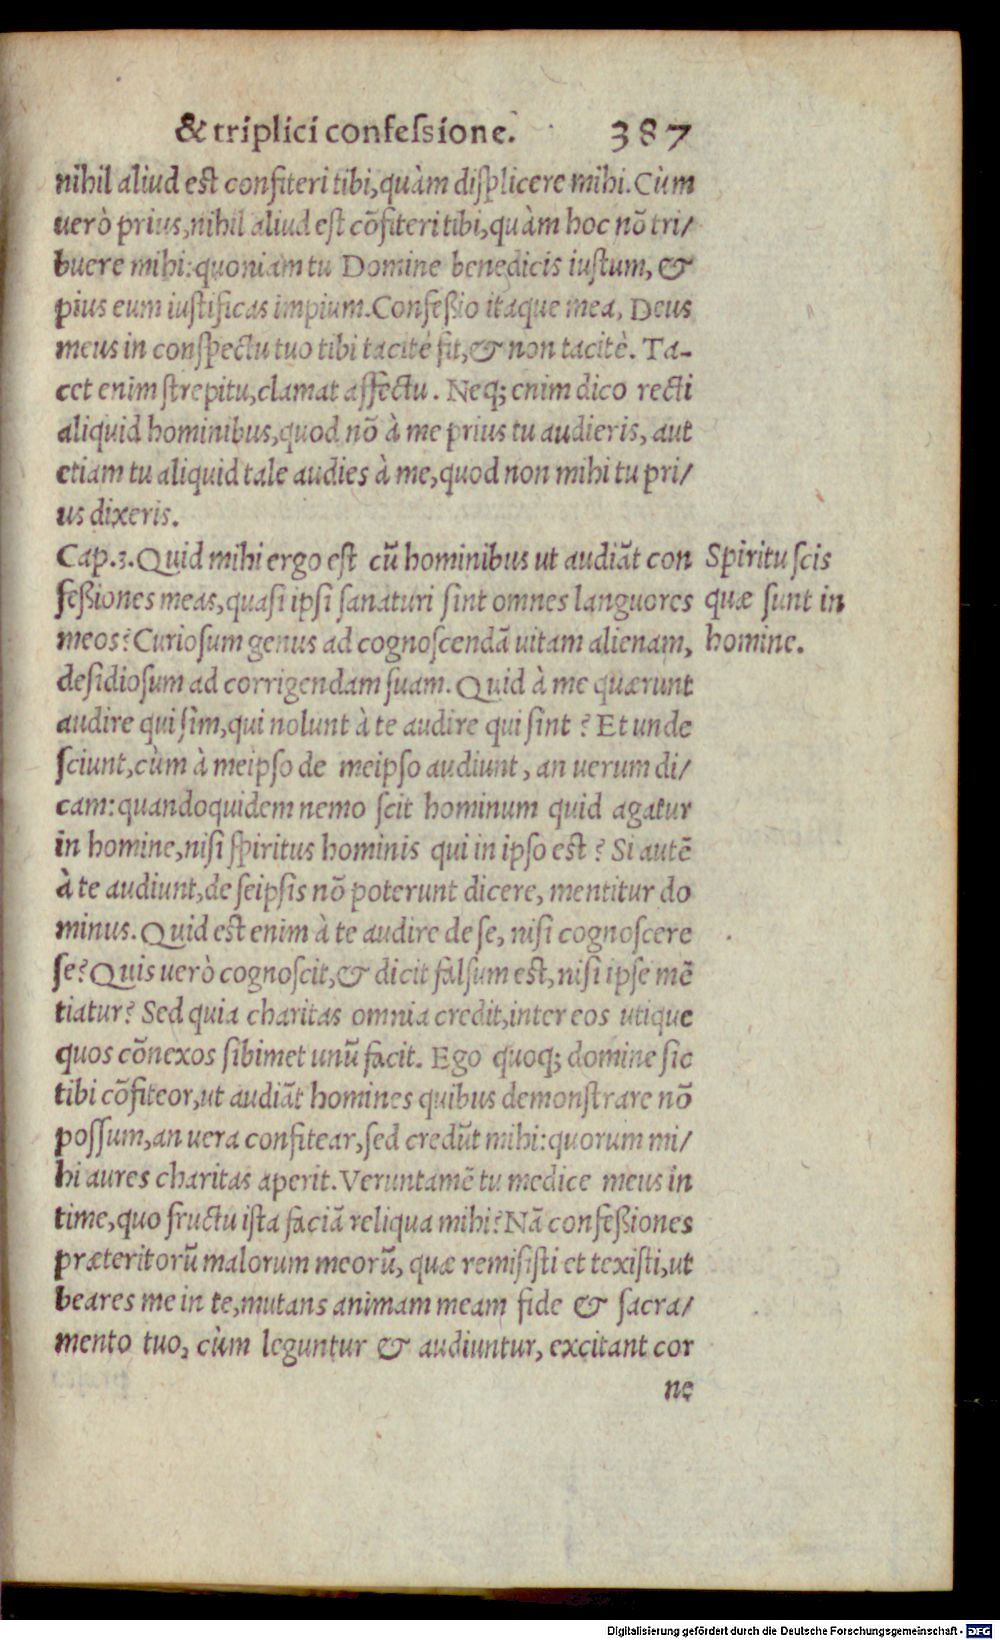 & triplici confeſsione. 387
nihil aliud est confiteri tibi, quàm diſplicere mihi. Cùm
uerò prius, nihil aliud eſt cõfiteri tibi, quàm hoc nõ tri/
buere mihi: quoniam tu Domine benedicis iuſtum, &
pius eum iuſtificas impium. Confeßio itaque mea, Deus
meus in conſpectu tuo tibi tacitè fit, & non tacitè. Ta-
cet enim ſtrepitu, clamat affectu. Neq; enim dico recti
aliquid hominibus, quod nõ à me prius tu audieris, aut
etiam tu aliquid tale audies à me, quod non mihi tu pri/
us dixeris.
Cap. 3. Quid mihi ergo est cũ hominibus ut audiãt con
feßiones meas, quaſi ipſi ſanaturi ſint omnes languores
meos? Curioſum genus ad cognoſcendã uitam alienam,
deſidioſum ad corrigendam ſuam. Quid à me quærunt
audire qui ſim, qui nolunt à te audire qui ſint? Et unde
ſciunt, cùm à meipſo de meipſo audiunt, an uerum di/
cam: quandoquidem nemo ſcit hominum quid agatur
in homine, niſi ſpiritus hominis qui in ipſo est? Si autẽ
à te audiunt, de ſeipſis nõ poterunt dicere, mentitur do
minus. Quid est enim à te audire de ſe, niſi cognoſcere
ſe? Quis uerò cognoſcit, & dicit falſum est, niſi ipſe mẽ
tiatur? Sed quia charitas omnia credit, inter eos utique
quos cõnexos ſibimet unũ facit. Ego quoq; domine ſic
tibi cõfiteor, ut audiãt homines quibus demonſtrare nõ
poſſum, an uera confitear, ſed credũt mihi: quorum mi/
hi aures charitas aperit. Veruntamẽ tu medice meus in
time, quo fructu iſta faciã reliqua mihi? Nã confeßiones
præteritorũ malorum meorũ, quæ remiſiſti et texiſti, ut
beares me in te, mutans animam meam fide & ſacra/
mento tuo, cùm leguntur & audiuntur, excitant cor
ne
Spiritu ſcis
quæ ſunt in
homine.
Digitalisierung gefördert durch die Deutsche Forschungsgemeinschaft - DFG